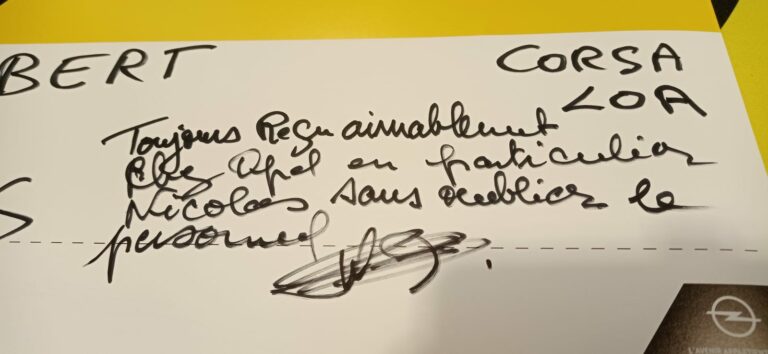 BERT CORSA
LOA
Toujours Reçu aimablement
chez Opel en particulier
Nicolas sans oublier le
personnel
S